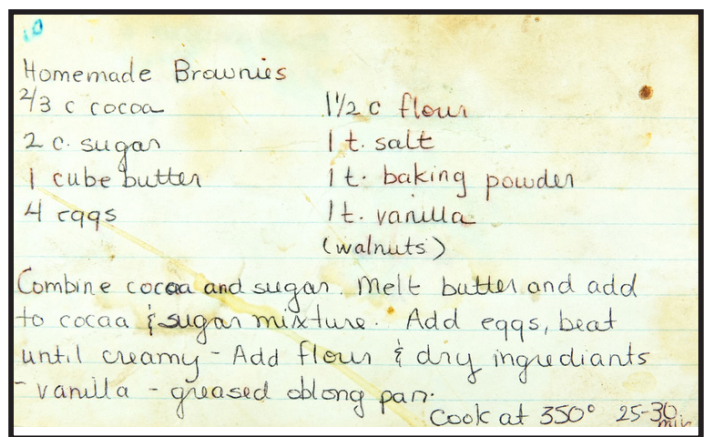 10
Homemade Brownies
2/3 c cocoa
2 c. sugar
1 cube butter
4 eggs
1 1/2 c flour
1 t. salt
1 t. baking powder
1 t. vanilla
(walnuts)
Combine cocoa and sugar. Melt butter and add
to cocaa & sugar mixture. Add eggs, beat
until creamy - Add flour & dry ingrediants
- vanilla - greased oblong pan.
Cook at 350° 25-30 min